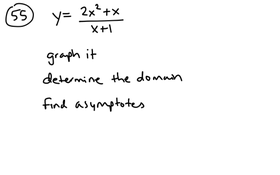 55 y = (2x² + x)/(x + 1)
graph it
determine the domain
find asymptotes